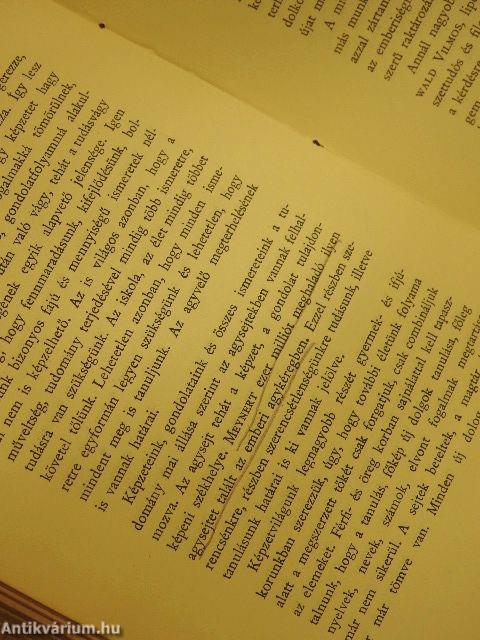 gerezze,
Így lesz
képzetet hagy
galmakká tömörülnek,
gondolatfolyammá alakul-
után való vágy, tehát a tudásvágy
gének egyik alapvető jelensége. Igen
hogy fennmaradásunk, kifejlődésünk, bol-
unk bizonyos fajú és mennyiségű ismeretek nél-
nem is képzelhető. Az is világos azonban, hogy a
műveltség, tudomány terjedésével mindig több ismeretre,
tudásra van szükségünk. Az iskola, az élet mindig többet
követel tőlünk. Lehetetlen azonban, hogy minden isme-
retre egyformán legyen szükségünk és lehetetlen, hogy
mindent meg is tanuljunk. Az agyvelő megterhelésének
is vannak határai.
Képzeteink, gondolataink és összes ismereteink a tu-
domány mai állása szerint az agysejtekben vannak felhal-
mozva. Az agysejt tehát a képzet, a gondolat tulajdon-
képeni székhelye. MEYNERT ezer milliót meghaladó ilyen
agysejtet talált az emberi agykéregben. Ezzel részben sze-
rencénkre, részben szerencsétlenségünkre tudásunk, illetve
tanulásunk határai is ki vannak jelölve.
Képzetvilágunk legnagyobb részét gyermek- és ifjú-
korunkban szerezzük, úgy, hogy további életünk folyama
alatt a megszerzett tőkét csak forgatjuk, csak combináljuk
az elemeket. Férfi- és öreg korban sajnálattal kell tapasz-
talnunk, hogy a tanulás, főkép új dolgok tanulása, főleg
nyelvek, nevek, számok, elvont fogalmak megtartása
már nem sikerül. A sejtek beteltek, a magtár
már tömve van. Minden új dolog
dolko
újat m
más munk
azzal zárran
az emberiség
szerű raktározá
Annál nagyob
WALD VILMOS, lip
szettudós és file
a kérdésre
gem
Antikvárium.hu